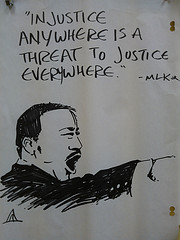 "INJUSTICE
ANYWHERE IS A
THREAT TO JUSTICE
EVERYWHERE."
- MLK JR